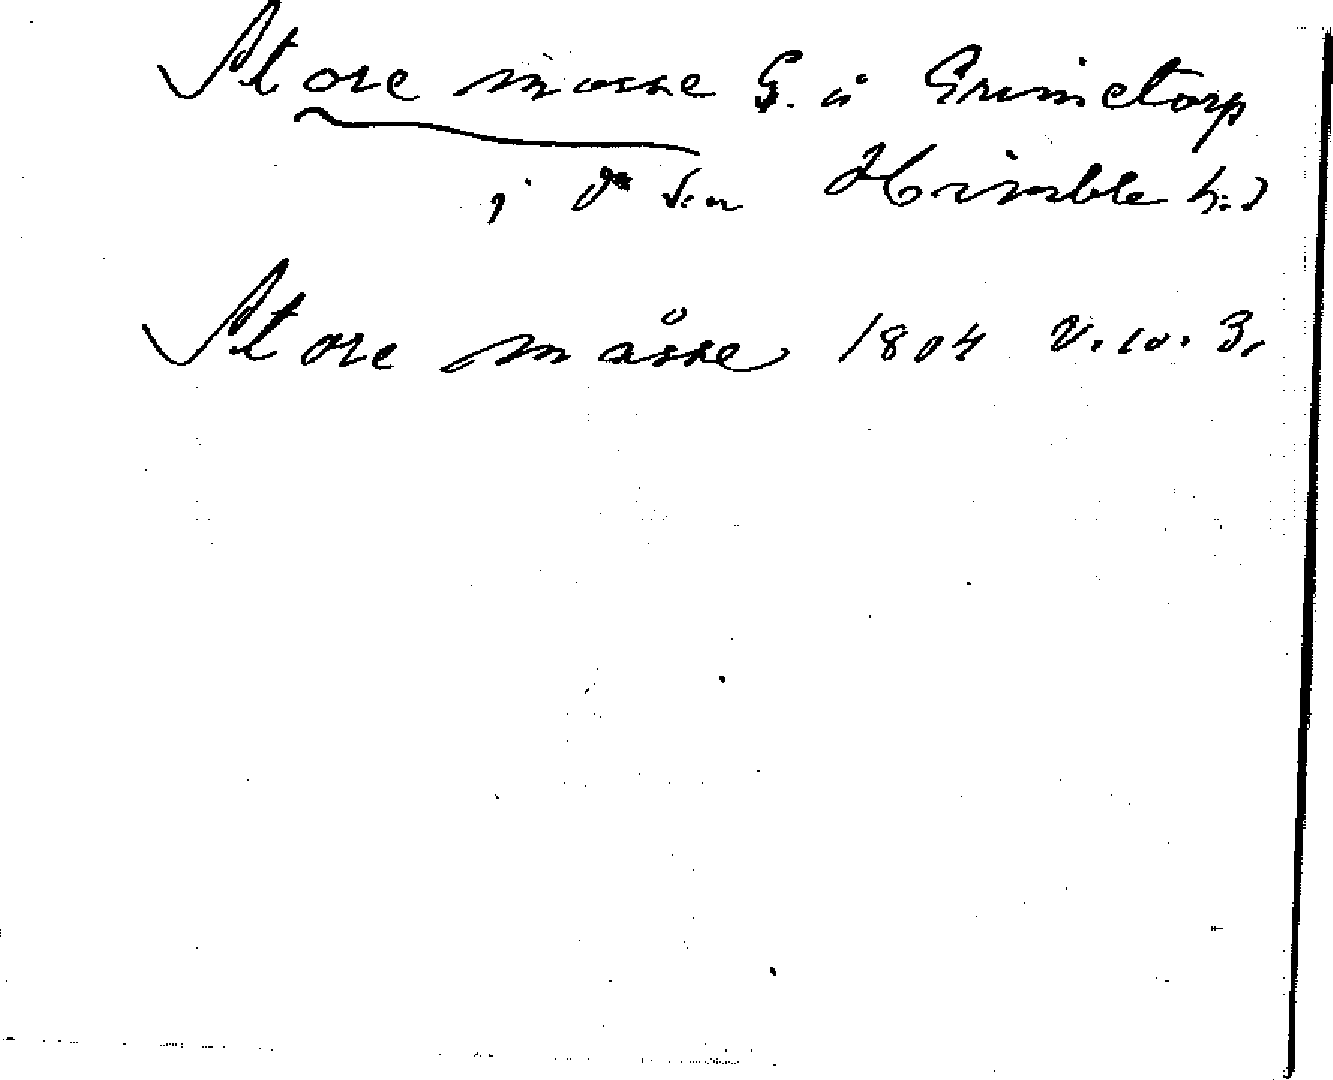 Store mosse G. å Grimetorp
i ds sn Himble hd
Store måsse 1804 V. 10. 3,